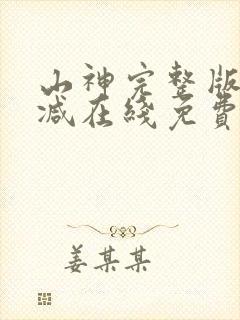 山神完整版
减在线免費
姜某某